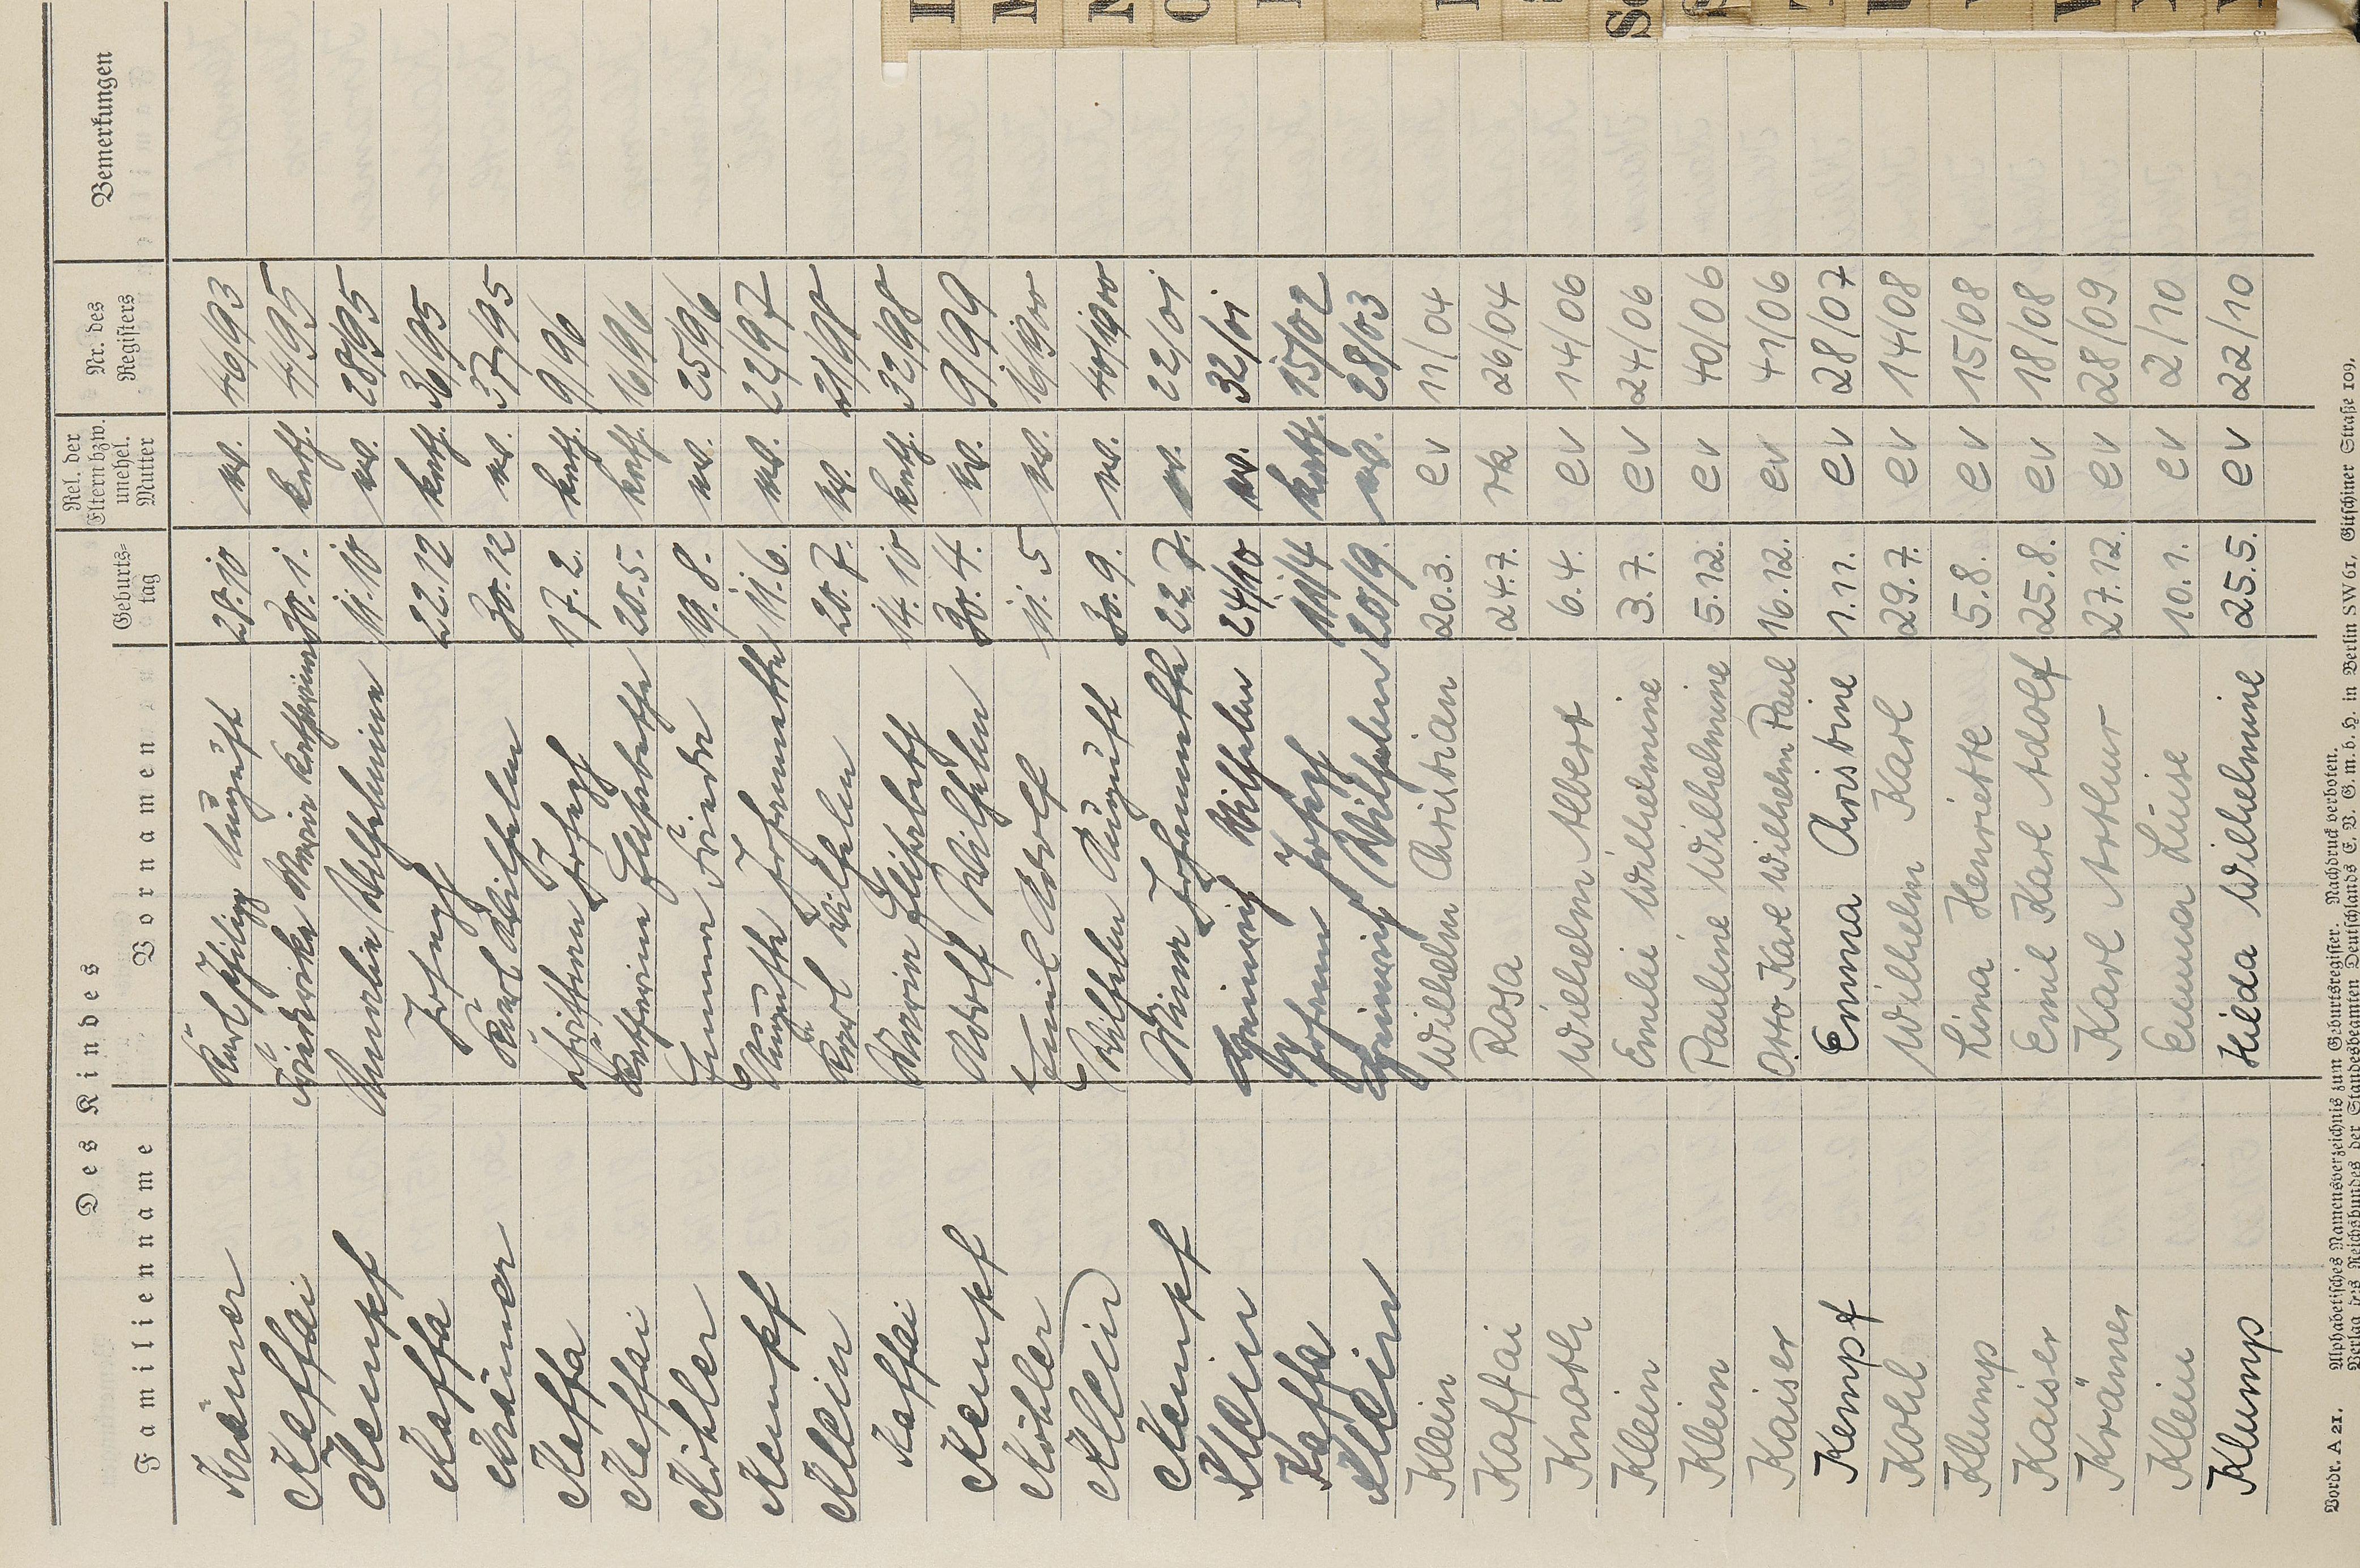 Des Kindes
Familienname Vornamen Geburts-tag Rel. der Eltern bzw. unehel. Mutter Nr. des Registers Bemerkungen
Krämer Karl Philipp August 28.10 ev. 46/93
Kaffai Friedrike Maria Katharina 30.1. kath. 4/95
Kempf Amalie Wilhelmine 11.10 ev. 28/95
Kaffa Joseph 22.12 kath. 36/95
Krämer Karl Wilhelm 30.12 ev. 37/95
Kaffa Christian Joseph 17.2. kath. 9/96
Kaffai Katharina Elisabetha 20.5. kath. 16/96
Köhler Emma Frieda 19.8. ev. 25/96
Kempf Auguste Johannette 11.6. ev. 22/97
Klein Karl Wilhelm 20.7. ev. 21/98
Kaffai Maria Elisabeth 14.10 kath. 32/98
Kempf Adolf Wilhelm 30.4. ev. 9/99
Köhler Emil Adolf 11.5 ev. 16/1900
Klein Wilhelm August 30.9. ev. 40/1900
Kempf Mina Johannette 22.7. ev. 22/01
Klein Heinrich Wilhelm 24/10 ev. 32/01
Kaffa Johann Joseph 11/4 kath. 15/02
Klein Heinrich Wilhelm 20/9. ev. 28/03
Klein Wilhelm Christian 20.3. ev 11/04
Kaffai Rosa 24.7. rk 26/04
Knoth Wilhelm Albert 6.4. ev 14/06
Klein Emilie Wilhelmine 3.7. ev 24/06
Klein Pauline Wilhelmine 5.12. ev 40/06
Kaiser Otto Karl Wilhelm Paul 16.12. ev 41/06
Kempf Emma Christine 1.11. ev 28/07
Kohl Wilhelm Karl 29.7. ev 14/08
Klump Lina Henriette 5.8. ev 15/08
Kaiser Emil Karl Adolf 25.8. ev 18/08
Krämer Karl Arthur 27.12. ev 28/09
Klein Emma Luise 10.1. ev 2/10
Klump Hilda Wilhelmine 25.5. ev 22/10
Vordr. A 21. Alphabetisches Namensverzeichnis zum Geburtsregister. Nachdruck verboten.
Verlag des Reichsbundes der Standesbeamten Deutschlands E. V. G. m. b. H. in Berlin SW 61, Gitschiner Straße 109.